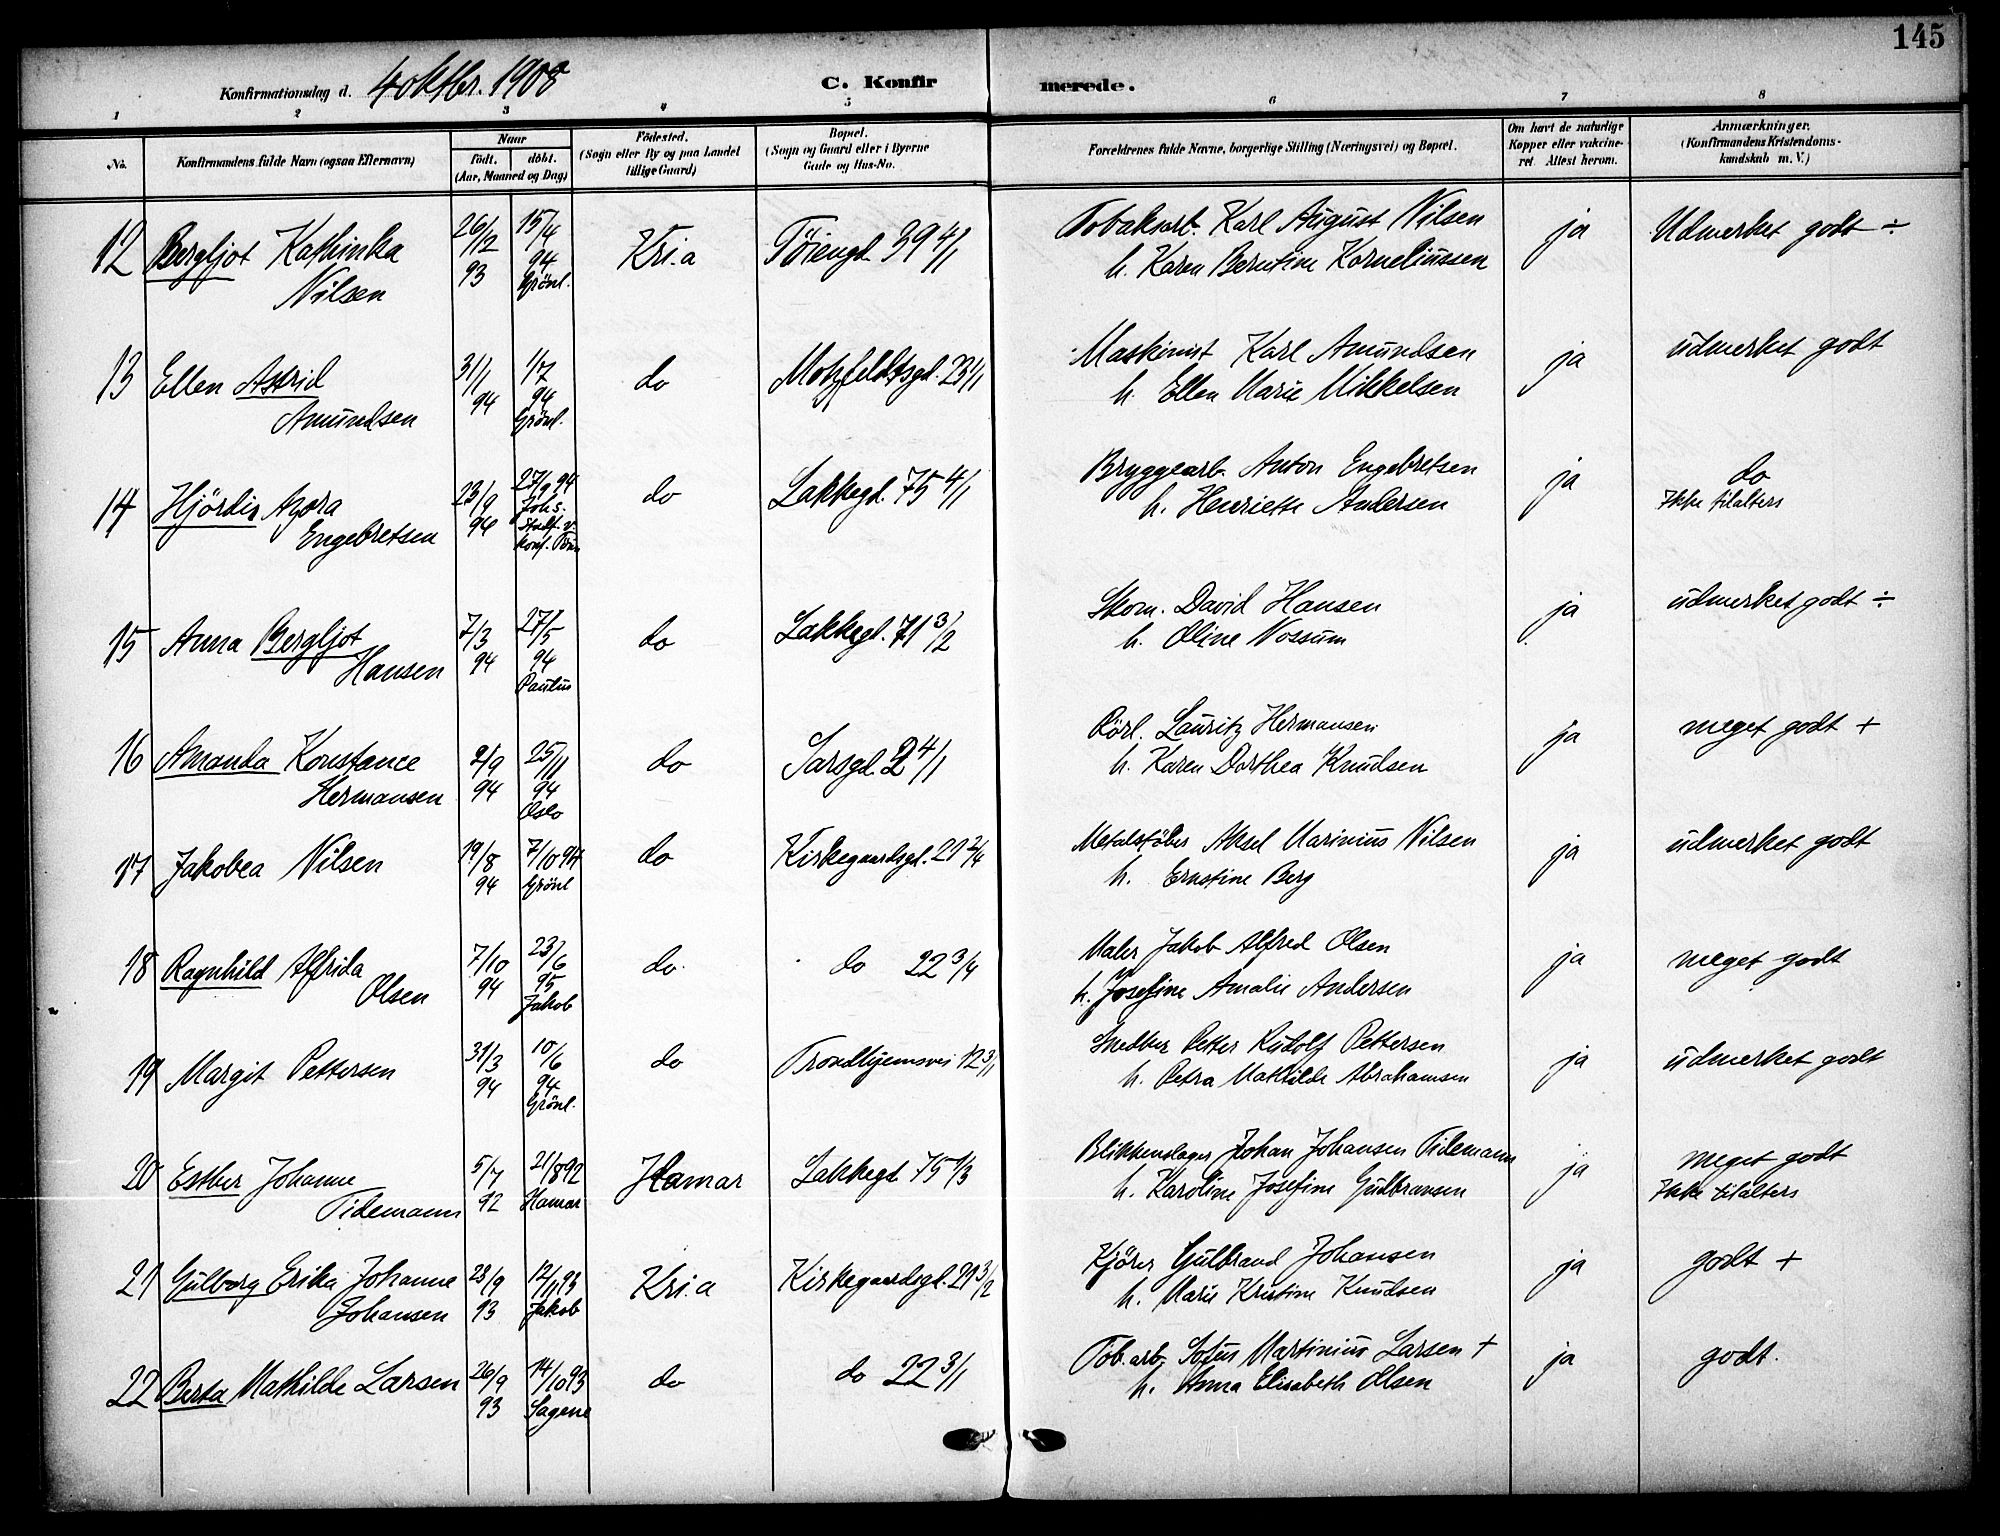 145
Konfirmationsdag d. 4 oktbr. 1908 C. Konfirmerede.
1 2 3 4 5 6 7 8
No.
Konfirmandens fulde Navn (ogsaa Efternavn)
Naar
födt. döbt.
(Aar, Maaned og Dag)
Födested.
(Sogn eller By og paa Landet
tillige Gaard)
Bopæl.
(Sogn og Gaard eller i Byerne
Gade og Hus-No.
Forældrenes fulde Navne, borgerlige Stilling (Næringsvei) og Bopæl.
Om havt de naturlige
Kopper eller vakcine-
ret. Attest herom.
Anmærkninger.
(Konfirmandens Kristendoms-
kundskab m. V.)
12 Bergljot Kathinka
Nilsen
26/12
93
15/4
94
Grönl.
Kri.a
Töiengd. 39 4/1
Tobaksarb. Karl August Nilsen
h. Karen Berntine Korneliussen
ja
Udmerket godt ÷
13 Ellen Astrid
Amundsen
31/1
94
1/7
94
Grönl.
do
Motzfeldtsgd. 23 1/1
Maskinist Karl Amundsen
h. Ellen Marie Mikkelsen
ja
udmerket godt
14 Hjördis Agora
Engebretsen
23/9
94
27/9 94
Johs.
do
Lakkegd. 75 4/1
Bryggearb. Anton Engebretsen
h. Henriette Andersen
ja
do
Ikke tilalters
15 Anna Bergljot
Hansen
7/3
94
27/5
94
Paulus
do
Lakkegd. 71 3/2
Skom. David Hansen
h. Oline Nossum
ja
udmerket godt ÷
16 Amanda Konstance
Hermansen
2/9
94
25/11
94
Oslo
do
Sarsgd. 2 4/1
Rörl. Lauritz Hermansen
h. Karen Dorthea Knudsen
ja
meget godt +
17 Jakobea Nilsen
19/8
94
7/10 94
Grönl
do
Kirkegaardsgd. 21 2/4
Metalstöber Aksel Marinius Nilsen
h. Ernstine Berg
ja
udmerket godt
18 Ragnhild Alfrida
Olsen
7/10
94
23/6
95
Jakob
do
do 22 3/4
Maler Jakob Alfred Olsen
h. Josefine Amalie Andersen
ja
meget godt
19 Margit Pettersen
31/3
94
10/6
94
Grönl.
do
Trondhjemsvei 12 3/1
Snedker Petter Rudolf Pettersen
h. Petra Mathilde Abrahamsen
ja
udmerket godt
20 Esther Johanne
Tidemann
5/7
92
21/8 92
Hamar
Hamar
Lakkegd 75 1/3
Blikkenslager Johan Johansen Tidemann
h. Karoline Josefine Gudbransen
ja
meget godt
Ikke tilalters
21 Gulborg Erika Johanne
Johansen
23/9
93
12/11 93
Jakob
Kri.a
Kirkegaardsgd. 21 3/2
Kjörer Gulbrand Johansen
h. Marie Kristine Knudsen
ja
godt +
22 Berta Mathilde Larsen
26/9
93
14/10 93
Sagene
do
do 22 3/1
Tob.arb. Sofus Martinius Larsen +
h. Anna Elisabeth Olsen
ja
godt.